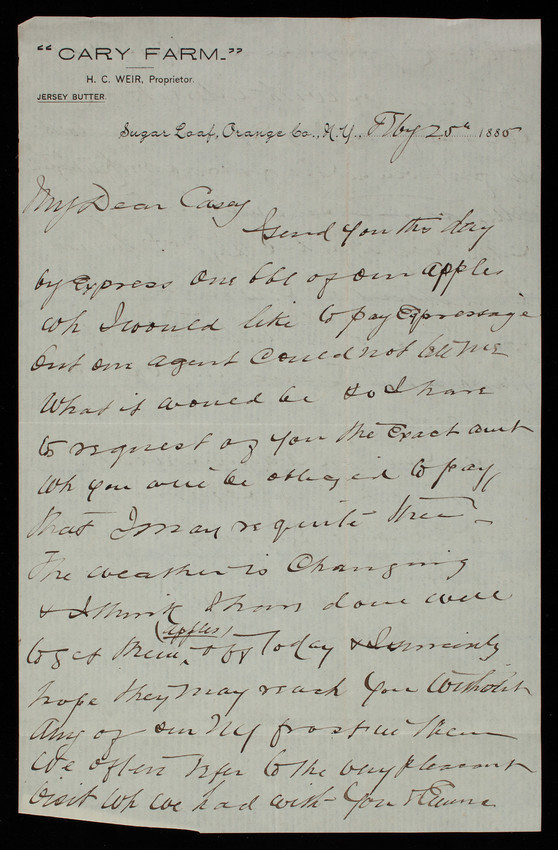 “CARY FARM.”
H. C. WEIR, Proprietor.
JERSEY BUTTER.
Sugar Loaf, Orange Co., N.Y., Feby 25th 1885
My Dear Casey
I send you this day
by Express one bbl of our apples
wh I would like to pay Expressage
but our agent could not tell me
what it would be so I have
to request of you the exact amt
wh you will be obliged to pay
that I may requite thee –
The weather is changing
& I think I have done well
(apples)
to get them off today & I sincerely
hope they may reach you without
any of our NY frost in them
We often refer to the very pleasant
visit wh we had with you & Emma